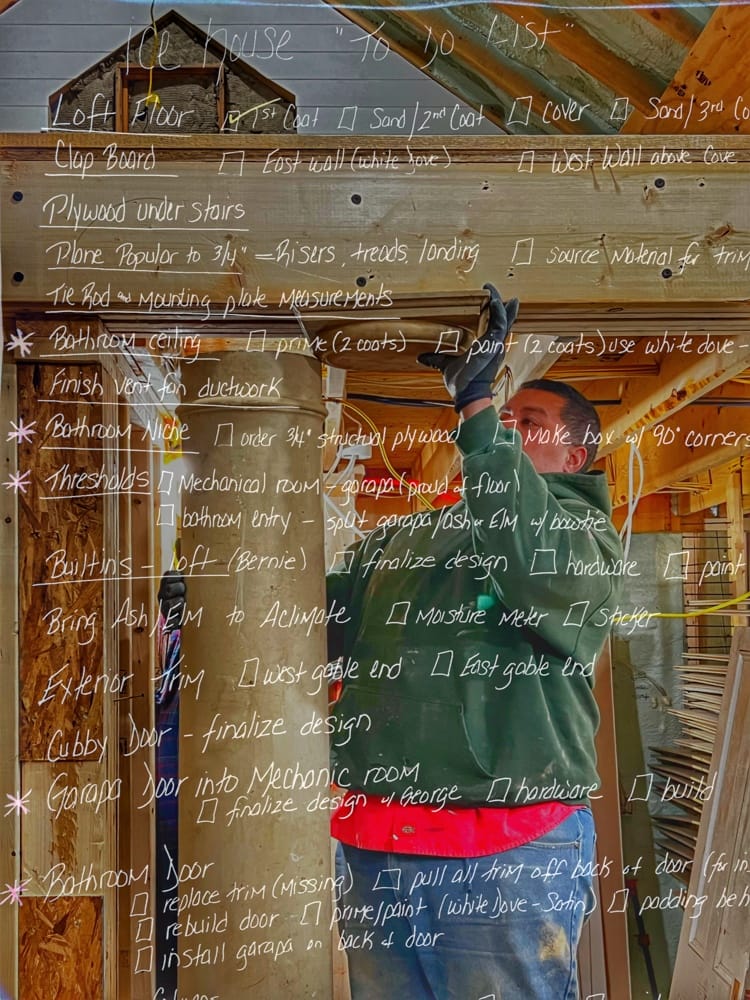 ice house "To Do List"
Loft Floor ☑ 1st Coat ☐ Sand/2nd Coat ☐ Cover ☐ Sand/3rd Co
Clap Board ☐ East wall (white Dove) ☐ West Wall above Cove
Plywood under Stairs
Plane Popular to 3/4" = Risers, treads, landing ☐ source material for trim
Tie Rod & Mounting plate Measurements
* Bathroom ceiling ☐ prime (2 coats) ☐ paint (2 coats) use white dove -
Finish vent fan ductwork
* Bathroom Niche ☐ order 3/4" structual plywood ☐ Make box w/ 90° corners
* Thresholds ☐ Mechanical room - garapa (proud of floor)
☐ bathroom entry - split garapa/ash or Elm w/ bowtie
Builtin's - loft (Bernie) ☐ finalize design ☐ hardware ☐ paint
Bring Ash/Elm to Aclimate ☐ Moisture Meter ☐ Sticker
Exterior trim ☐ west gable end ☐ East gable end
Cubby Door - finalize design
* Garapa Door into Mechanic room
☐ finalize design w/ George ☐ hardware ☐ build
* Bathroom Door
☐ replace trim (Missing) ☐ pull all trim off back of door (for in
☐ rebuild door - ☐ prime/paint (white Dove - Satin) ☐ padding beh
☐ install garapa on back of door